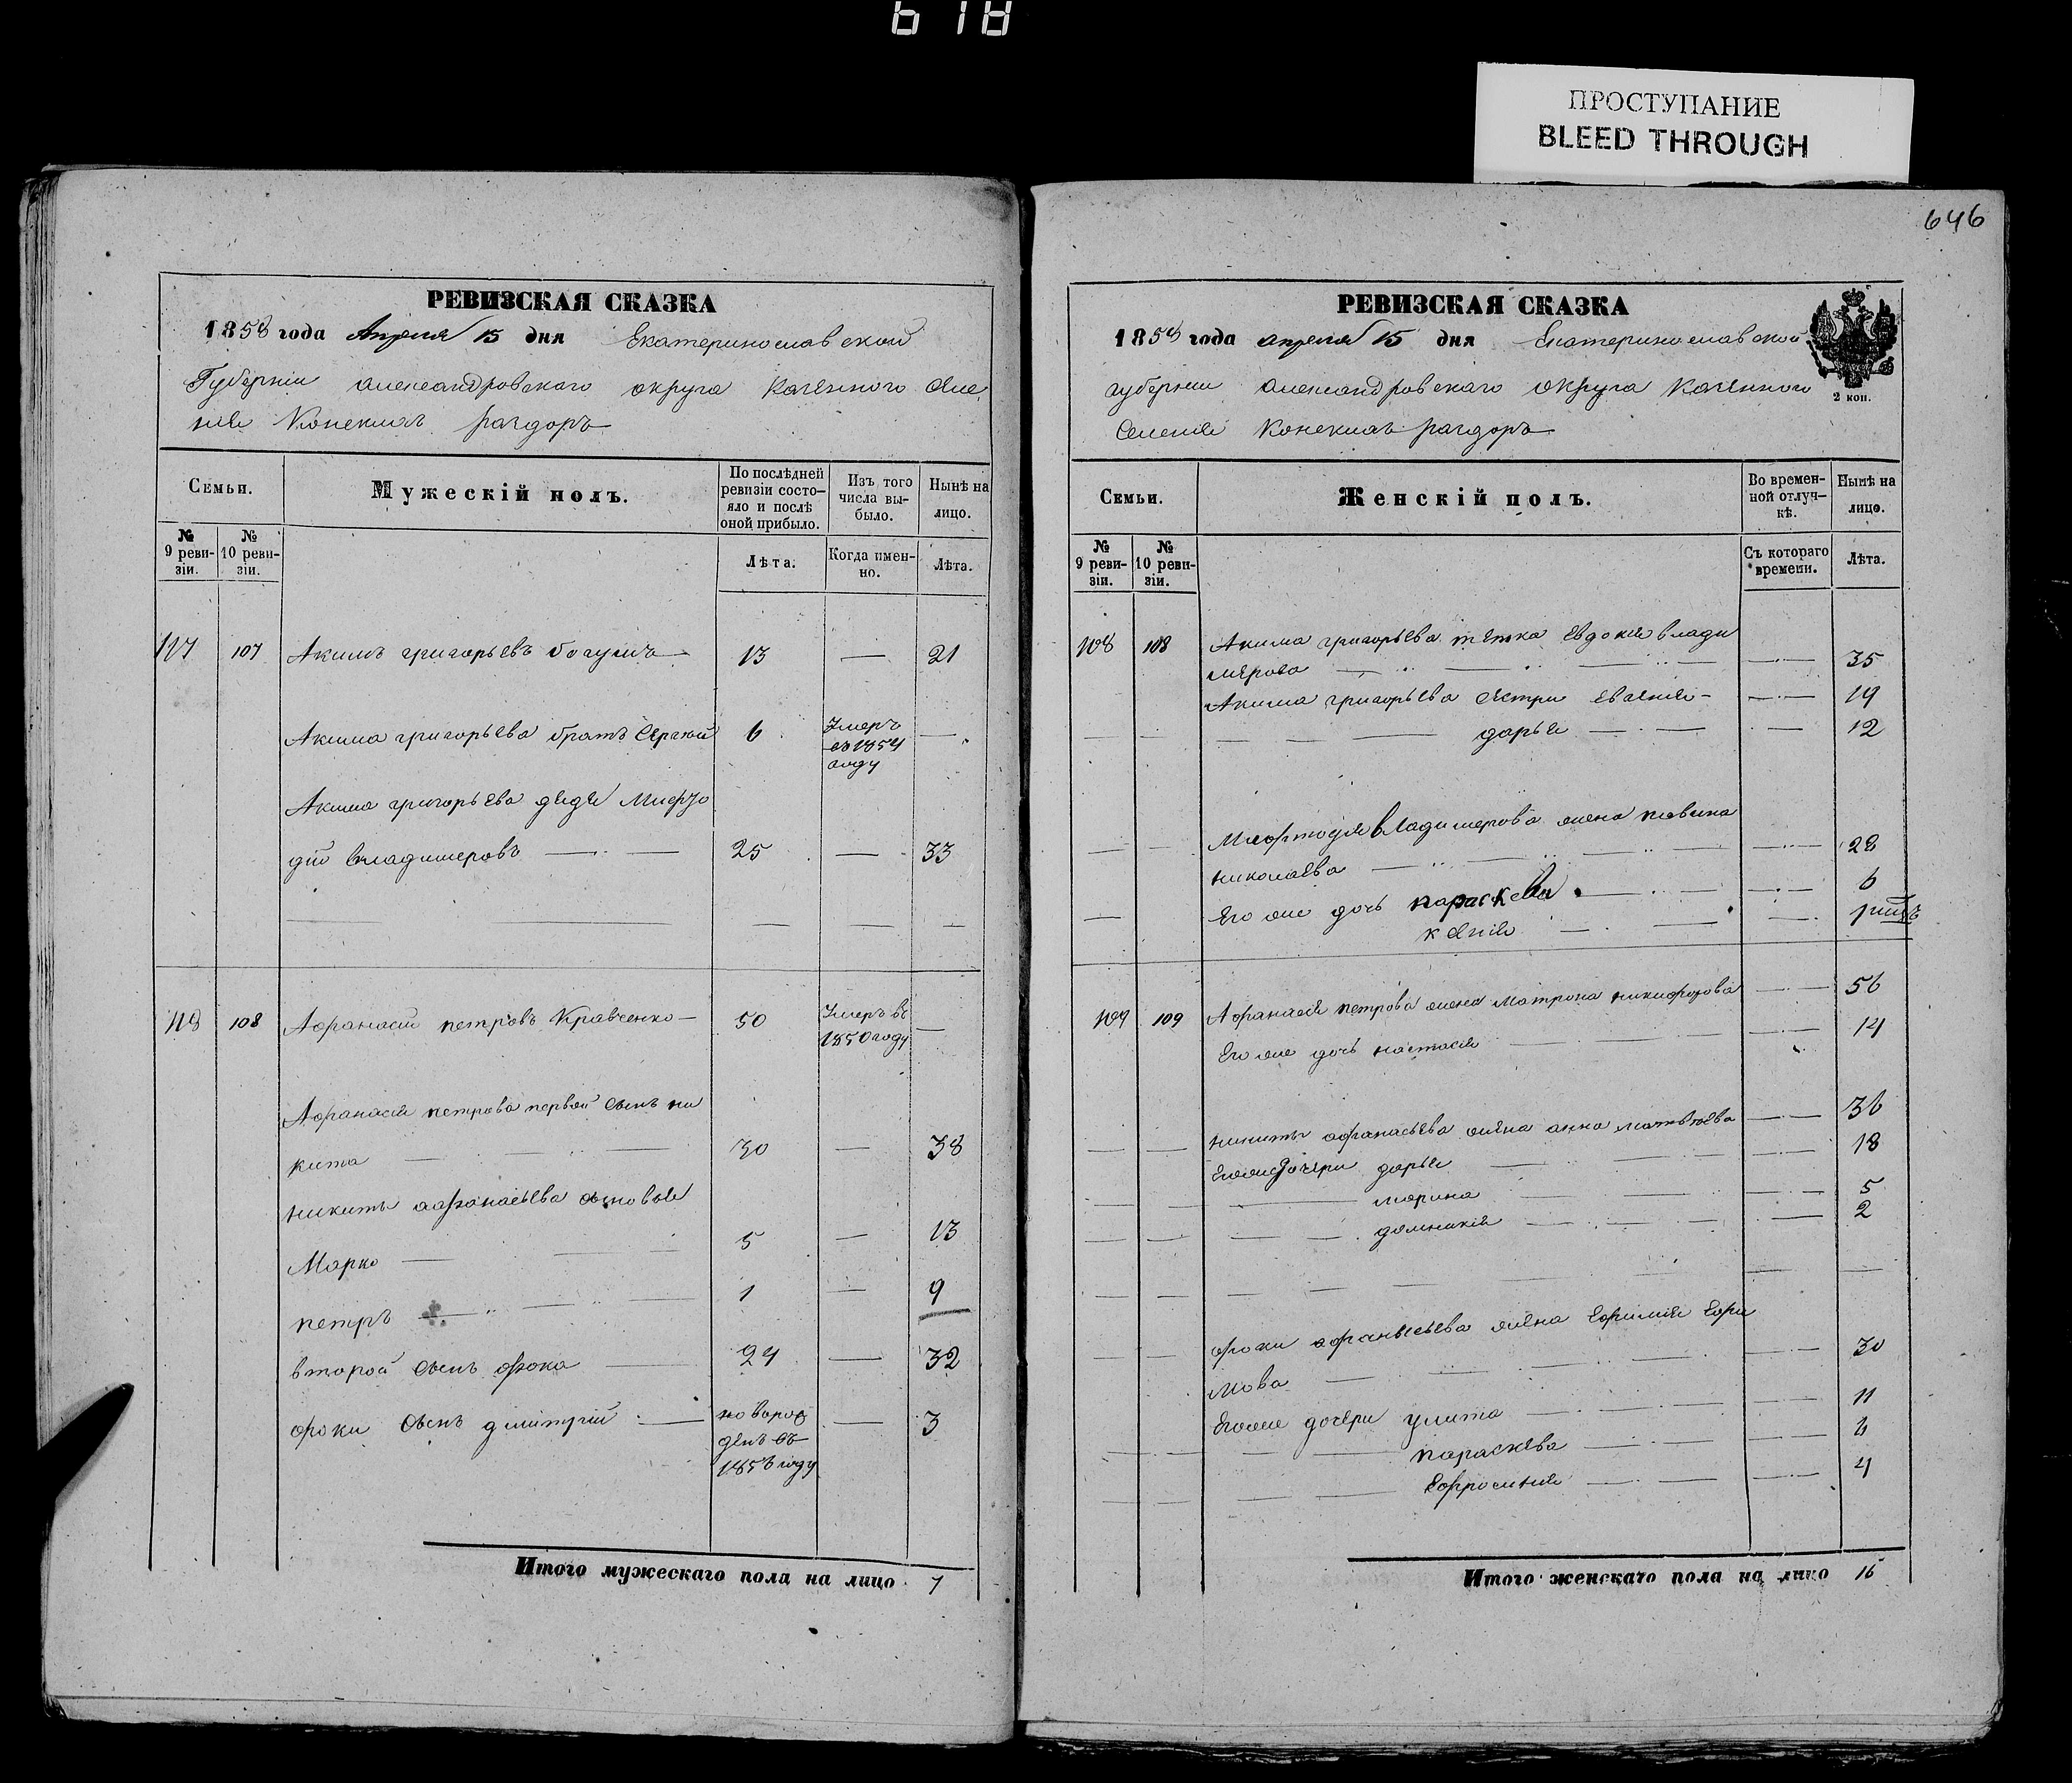 618
ПРОСТУПАНИЕ
BLEED THROUGH
646
РЕВИЗСКАЯ СКАЗКА
1858 года Апреля 15 дня Екатеринославской
Губерніи александровскаго округа казенного Селе
нія Конскихъ раздоръ
Семьи.
Мужескій полъ.
По послѣдней ревизіи состо—яло и послѣ оной прибыло.
Изъ того числа вы—было.
Нынѣ на лицо.
№ 9 реви-зіи.
№ 10 реви-зіи.
Лѣта.
Когда имен-но.
Лѣта.
107 Акимъ григорьевъ 13 — 21
Акима григорьева братъ Сергей 6 Умеръ въ 1854 году —
Акима григорьева дядя Мефо
дій владимеровъ 25 — 33
108 Афанасій петровъ Кравченко — 50 Умеръ въ 1850 году —
Афанасія петрова первой сынъ ни
кита 30 — 38
никиты афанасьева сыновья
Марко 5 — 13
петръ 1 — 9
второй сынъ фока 24 — 32
фоки сынъ дмитрій новорож денъ въ году — 3
Итого мужескаго пола на лицо 7
РЕВИЗСКАЯ СКАЗКА
1858 года апреля 15 дня Екатеринославской
губерніи александровскаго округа казенного
Селенія Конскихъ раздоръ
2 коп.
Семьи.
Женскій полъ.
Во времен-ной отлуч—кѣ.
Нынѣ на лицо.
№ 9 реви-зіи.
№ 10 реви-зіи.
Съ котораго времени.
Лѣта.
108 108 Акима григорьева тетка Евдокія влади
мерова 35
Акима григорьева сестри 19
дарья 12
владимерова жена
николаева 28
Его же дочь параскева 6
ксенія
109 109 Афанасія петрова жена Матрона никифорова 56
Его же дочь настасія 14
никиты афанасьева жена анна матвѣева 36
Его же дочери дарья 18
марина 5
домникія 2
фоки афанасьева жена Ефимія Ефи
мова 30
Его же дочери улита 11
параскева 6
Ефросинія 4
Итого женскаго пола на лицо 16